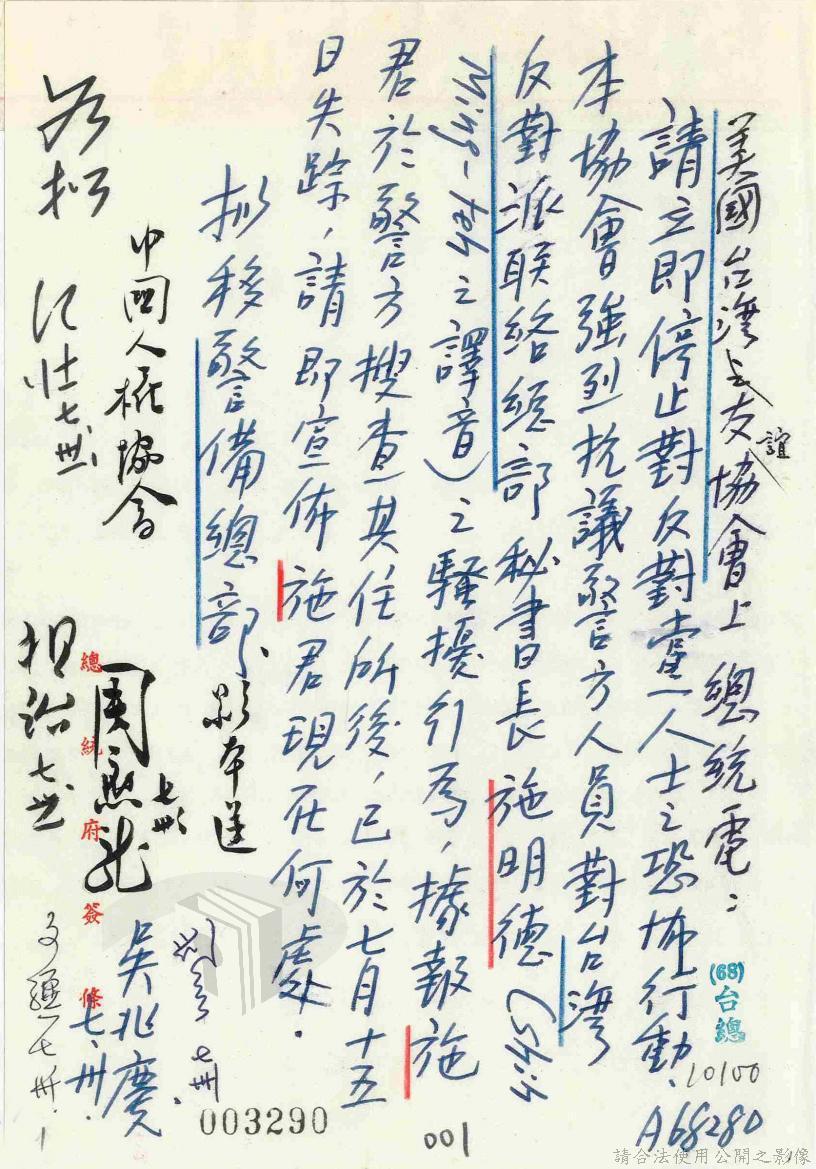 美國台灣之友誼協會上 總統電：
請立即停止對反對黨人士之恐怖行動、
本協會強烈抗議警方人員對台灣
反對派联络總部秘書長施明德（Shih
Ming-teh之譯音）之騷擾行為，據報施
君於警方搜查其住所後，已於七月十五
日失踪，請即宣佈施君現在何處．
擬移警備總部、影本送
中國人權協會
吳兆慶
七、卅、
總統府簽條
(68)台總
10100
A68280
003290
001
請合法使用公開之影像